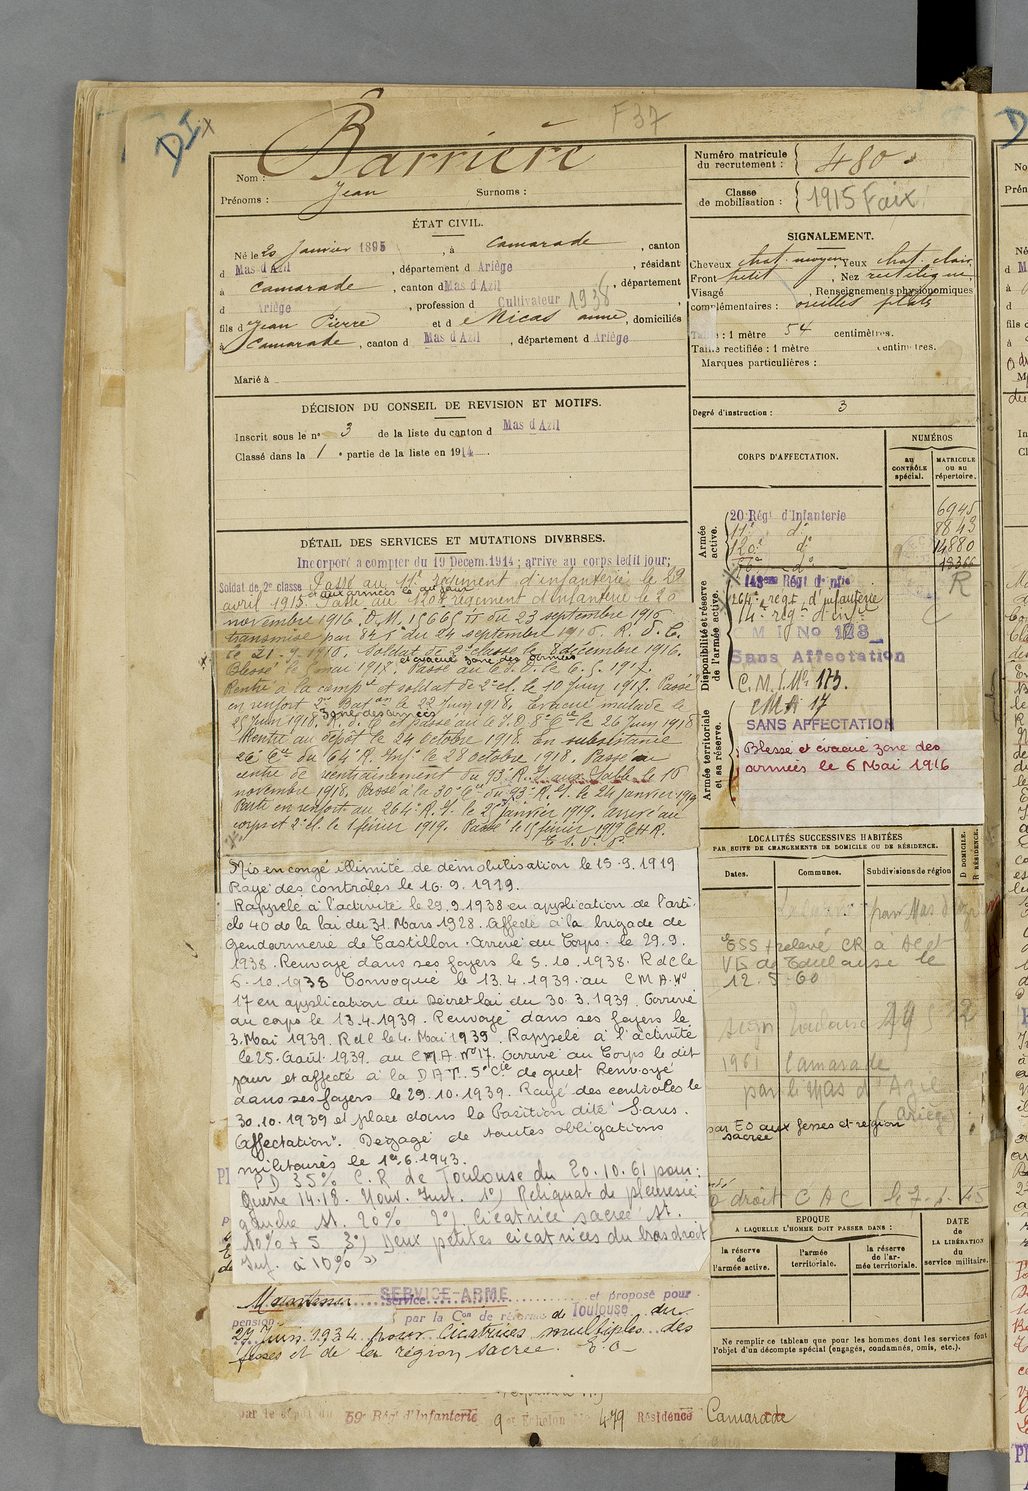 DI x
F37
Nom : Barrière
Prénoms : Jean Surnoms :
Numéro matricule du recrutement : 480
Classe de mobilisation : 1915 Foix
ÉTAT CIVIL.
Né le 20 Janvier 1895, à Camarade, canton
d Mas d'Azil, département d Ariège, résidant
à Camarade, canton d Mas d'Azil, département
d Ariège, profession d Cultivateur 1938,
fils d Jean Pierre et d e Nicas anne, domiciliés
à Camarade, canton d Mas d'Azil, département d Ariège
Marié à
SIGNALEMENT.
Cheveux chat. moyen, Yeux chat. clair
Front petit, Nez rectiligne,
Visagé , Renseignements physionomiques
complémentaires : oreilles plates
Taille : 1 mètre 54 centimètres.
Taille rectifiée : 1 mètre centimètres.
Marques particulières :
Degré d'instruction : 3
DÉCISION DU CONSEIL DE REVISION ET MOTIFS.
Inscrit sous le n° 3 de la liste du canton d Mas d'Azil
Classé dans la 1e partie de la liste en 1914.
CORPS D'AFFECTATION.
NUMÉROS
au CONTRÔLE spécial.
MATRICULE OU AU répertoire.
Armée active.
20 Régt d'Infanterie 6945
11e do 8843
120e do 14880
Disponibilité et réserve de l'armée active.
143ème Régt d'Infie R
264e régt d'infanterie
14e rég. d'inf.
C M I No 173
Sans Affectation
C. M. I. No 173.
Armée territoriale et sa réserve.
CMA 17
SANS AFFECTATION
Blessé et évacué zone des
armées le 6 Mai 1916
DÉTAIL DES SERVICES ET MUTATIONS DIVERSES.
Incorporé à compter du 19 Décem. 1914; arrivé au corps ledit jour;
Soldat de 2e classe Passé au 11e régiment d'infanterie le 29
avril 1915. Passé au 120e régiment d'Infanterie le 20
novembre 1916. D.M. 15665 π du 23 septembre 1916
transmise par 845 du 24 septembre 1916. R. D. C.
le 21.9.1916. Soldat de 2e classe le 8 décembre 1916.
et évacué zone des armées
Rentré à la compie et soldat de 2e cl. le 10 Juin 1917. Passé
en renfort 2e Baton le 22 Juin 1918. Evacué malade le
zone des armées
Rentré au dépôt le 24 octobre 1918. En subsistance
26 Cie du 64e R. Inf. le 28 octobre 1918. Passé au
centre de réentrainement du 93 R.I. aux Sables le 16
novembre 1918. Passé à la 30e Cie du 93e R.I. le 24 janvier 1919
Parti en renfort au 264e R.I. le 25 janvier 1919. arrivé au
corps et 2e cl. le 1 février 1919. Passé le 15 février 1919 CHR.
Mis en congé illimité de démobilisation le 15.9.1919
Rayé des contrôles le 16.9.1919.
Rappelé à l'activité le 29.9.1938 en application de l'arti-
cle 40 de la loi du 31 Mars 1928. Affecté à la brigade de
Gendarmerie de Castillon. Arrivé au Corps le 29.9.
1938. Renvoyé dans ses foyers le 5.10.1938. Rdc le
6.10.1938 Convoqué le 13.4.1939 au C M A No
17 en application du Décret loi du 30.3.1939. Arrivé
au corps le 13.4.1939. Renvoyé dans ses foyers le
3 Mai 1939. Rdc le 4 Mai 1939. Rappelé à l'activité
le 25 Août 1939. au CMA No 17. Arrivé au Corps le dit
jour et affecté à la DAT. 5e Cie de guet Renvoyé
dans ses foyers le 29.10.1939. Rayé des contrôles le
30.10.1939 et placé dans la Position dite "Sans
Affectation". Dégagé de toutes obligations
militaires le 1er.6.1943.
PD 35% C.R de Toulouse du 20.10.61 pour :
Guerre 14-18. Nouv. Inst. 1°) Reliquat de pleurésie
gauche St. 20% 2°) Cicatrice sacrée St.
10% + 5 3°) Deux petites cicatrices du bras droit
Inf. à 10% »
Maintenu SERVICE ARMÉ et proposé pour
pension par la Con de réforme de Toulouse du
27 Juin 1934 pour Cicatrices multiples des
fesses et de la région sacrée. E.O
LOCALITÉS SUCCESSIVES HABITÉES
PAR SUITE DE CHANGEMENTS DE DOMICILE OU DE RÉSIDENCE.
Dates. Communes. Subdivisions de région D DOMICILE. R RÉSIDENCE.
Camarade par Mas d'Azil
ESS + relevé CR à AC et
VG de Toulouse le
12.5.60
1961 Camarade
par le Mas d'Azil
(Ariège)
par EO aux fesses et région
sacrée
droit C A C le 7. . 45
EPOQUE
A LAQUELLE L'HOMME DOIT PASSER DANS :
la réserve de l'armée active.
l'armée territoriale.
la réserve de l'armée territoriale.
DATE de LA LIBÉRATION du service militaire.
Ne remplir ce tableau que pour les hommes dont les services font
l'objet d'un décompte spécial (engagés, condamnés, omis, etc.).
par le dépôt du 59e Régt d'Infanterie 9e Echelon No 479 Résidence Camarade